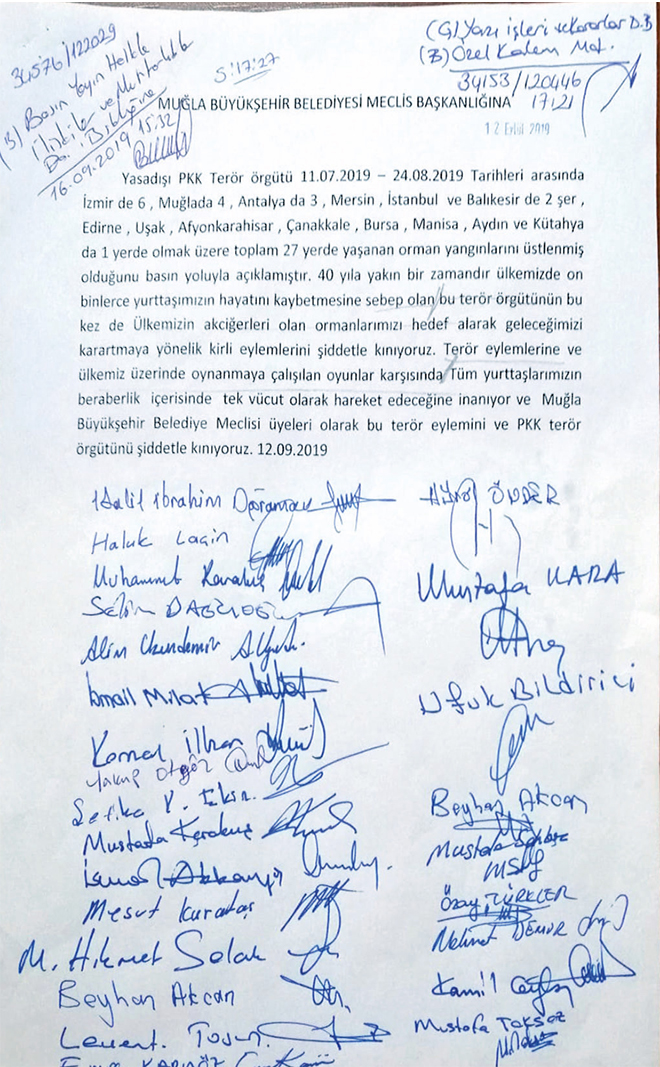 34576/122029
(B) Basın Yayın Halkla
İlişkiler ve Muhtarlık
Da. Bşk.lığına
16.09.2019 15:32
S:17:27
(G) Yazı işleri ve Kararlar D.B
(B) Özel Kalem Md.
34153/120446
17:21
12 Eylül 2019
MUĞLA BÜYÜKŞEHİR BELEDİYESİ MECLİS BAŞKANLIĞINA
Yasadışı PKK Terör örgütü 11.07.2019 – 24.08.2019 Tarihleri arasında
İzmir de 6 , Muğlada 4 , Antalya da 3 , Mersin , İstanbul ve Balıkesir de 2 şer ,
Edirne , Uşak , Afyonkarahisar , Çanakkale , Bursa , Manisa , Aydın ve Kütahya
da 1 yerde olmak üzere toplam 27 yerde yaşanan orman yangınlarını üstlenmiş
olduğunu basın yoluyla açıklamıştır. 40 yıla yakın bir zamandır ülkemizde on
binlerce yurttaşımızın hayatını kaybetmesine sebep olan bu terör örgütünün bu
kez de Ülkemizin akciğerleri olan ormanlarımızı hedef alarak geleceğimizi
karartmaya yönelik kirli eylemlerini şiddetle kınıyoruz. Terör eylemlerine ve
ülkemiz üzerinde oynanmaya çalışılan oyunlar karşısında Tüm yurttaşlarımızın
beraberlik içerisinde tek vücut olarak hareket edeceğine inanıyor ve Muğla
Büyükşehir Belediye Meclisi üyeleri olarak bu terör eylemini ve PKK terör
örgütünü şiddetle kınıyoruz. 12.09.2019
Halil İbrahim
ÖNDER
Haluk Laçin
Muhammet
Mustafa KARA
Selim
Alim Uzundemir
İsmail Milat
Ufuk Bildirici
Kemal İlhan
Yakup Otgöz
Şefika
Beyhan Akcan
Mustafa
Mustafa
İsmail Akkaya
Mesut Karataş
Özay TÜRKLER
Mehmet DEMİR
M. Hikmet Selak
Beyhan Akcan
Kamil
Levent. Tosun
Mustafa TOKSÖZ